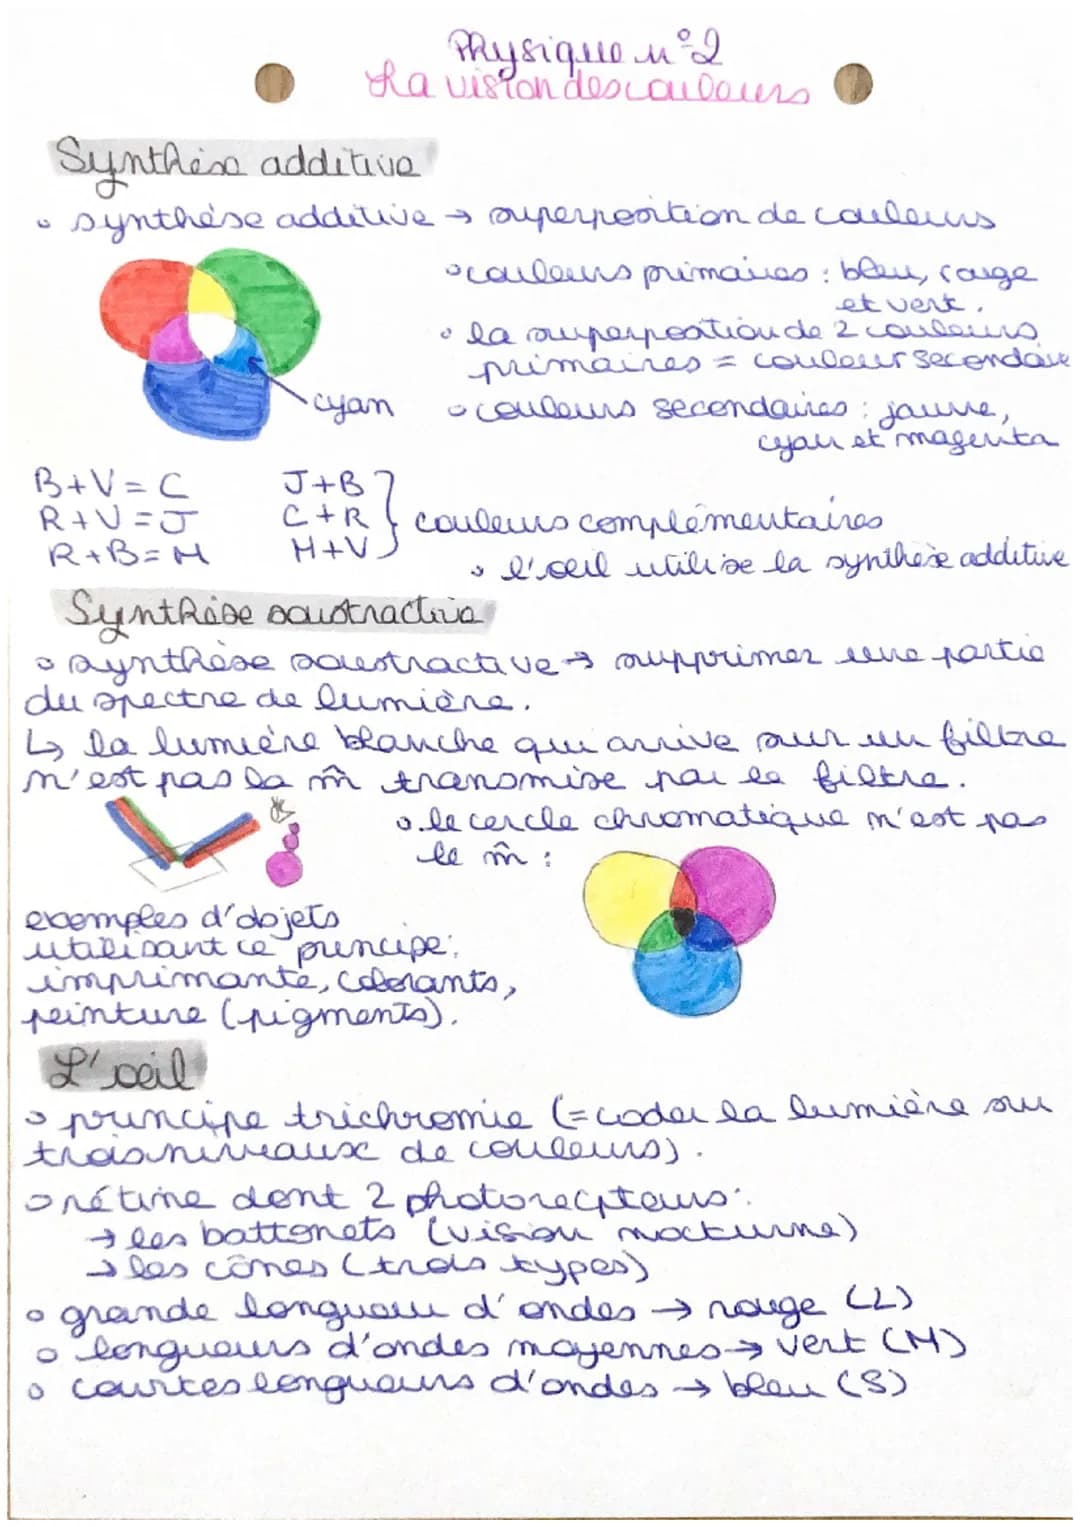 Physique n°2
La vision des couleurs
Synthèse additive
synthèse additive → superposition de couleurs
couleurs primaires : bleu, rouge
et vert.
la superposition de 2 couleurs
primaires = couleur secondaire
cyan
couleurs secondaires : jaune,
cyan et magenta
B+V = C
R+V = J
R+B = M
J+B
C+R
M+V
} couleurs complémentaires
l'oeil utilise la synthèse additive
Synthèse soustractive
synthèse soustractive → supprimer une partie
du spectre de lumière.
↳ la lumière blanche qui arrive sur un filtre
n'est pas la m̂ transmise par le filtre.
le cercle chromatique n'est pas
le m̂ :
exemples d'objets
utilisant ce principe:
imprimante, colorants,
peinture (pigments).
L'oeil
principe trichromie (= coder la lumière sur
trois niveaux de couleurs).
rétine dont 2 photorecepteurs:
→ les battonets (vision nocturne)
→ les cônes (trois types)
grande longueur d'ondes → rouge (L)
longueurs d'ondes moyennes → vert (M)
courtes longueurs d'ondes → bleu (S)